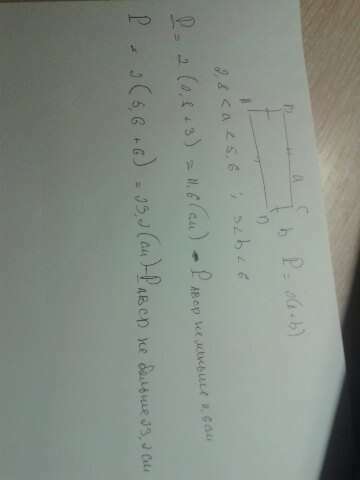 B a C b P = 2(a+b)
A D
2,8 < a < 5,6 ; 3 < b < 6
P = 2 (2,8 + 3) = 11,6 (см) - P ABCD не меньше 11,6 см
P = 2 (5,6 + 6) = 23,2 (см) - P ABCD не больше 23,2 см